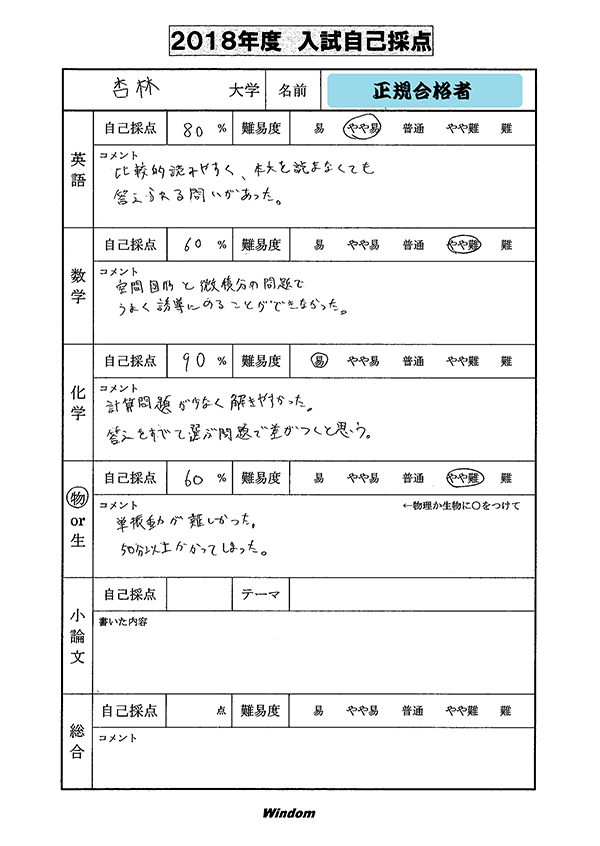 2018年度 入試自己採点
杏林 大学 名前 正規合格者
英語 自己採点 80 % 難易度 易 やや易 普通 やや難 難
コメント
比較的読みやすく、本文を読まなくても
答えられる問いがあった。
数学 自己採点 60 % 難易度 易 やや易 普通 やや難 難
コメント
空間図形と微積分の問題で
うまく誘導にのることができなかった。
化学 自己採点 90 % 難易度 易 やや易 普通 やや難 難
コメント
計算問題が少なく解きやすかった。
答えをすべて選ぶ問題で差がつくと思う。
物or生 自己採点 60 % 難易度 易 やや易 普通 やや難 難
コメント ←物理か生物に○をつけて
単振動が難しかった。
50分以上かかってしまった。
小論文 自己採点 テーマ
書いた内容
総合 自己採点 点 難易度 易 やや易 普通 やや難 難
コメント
Windom